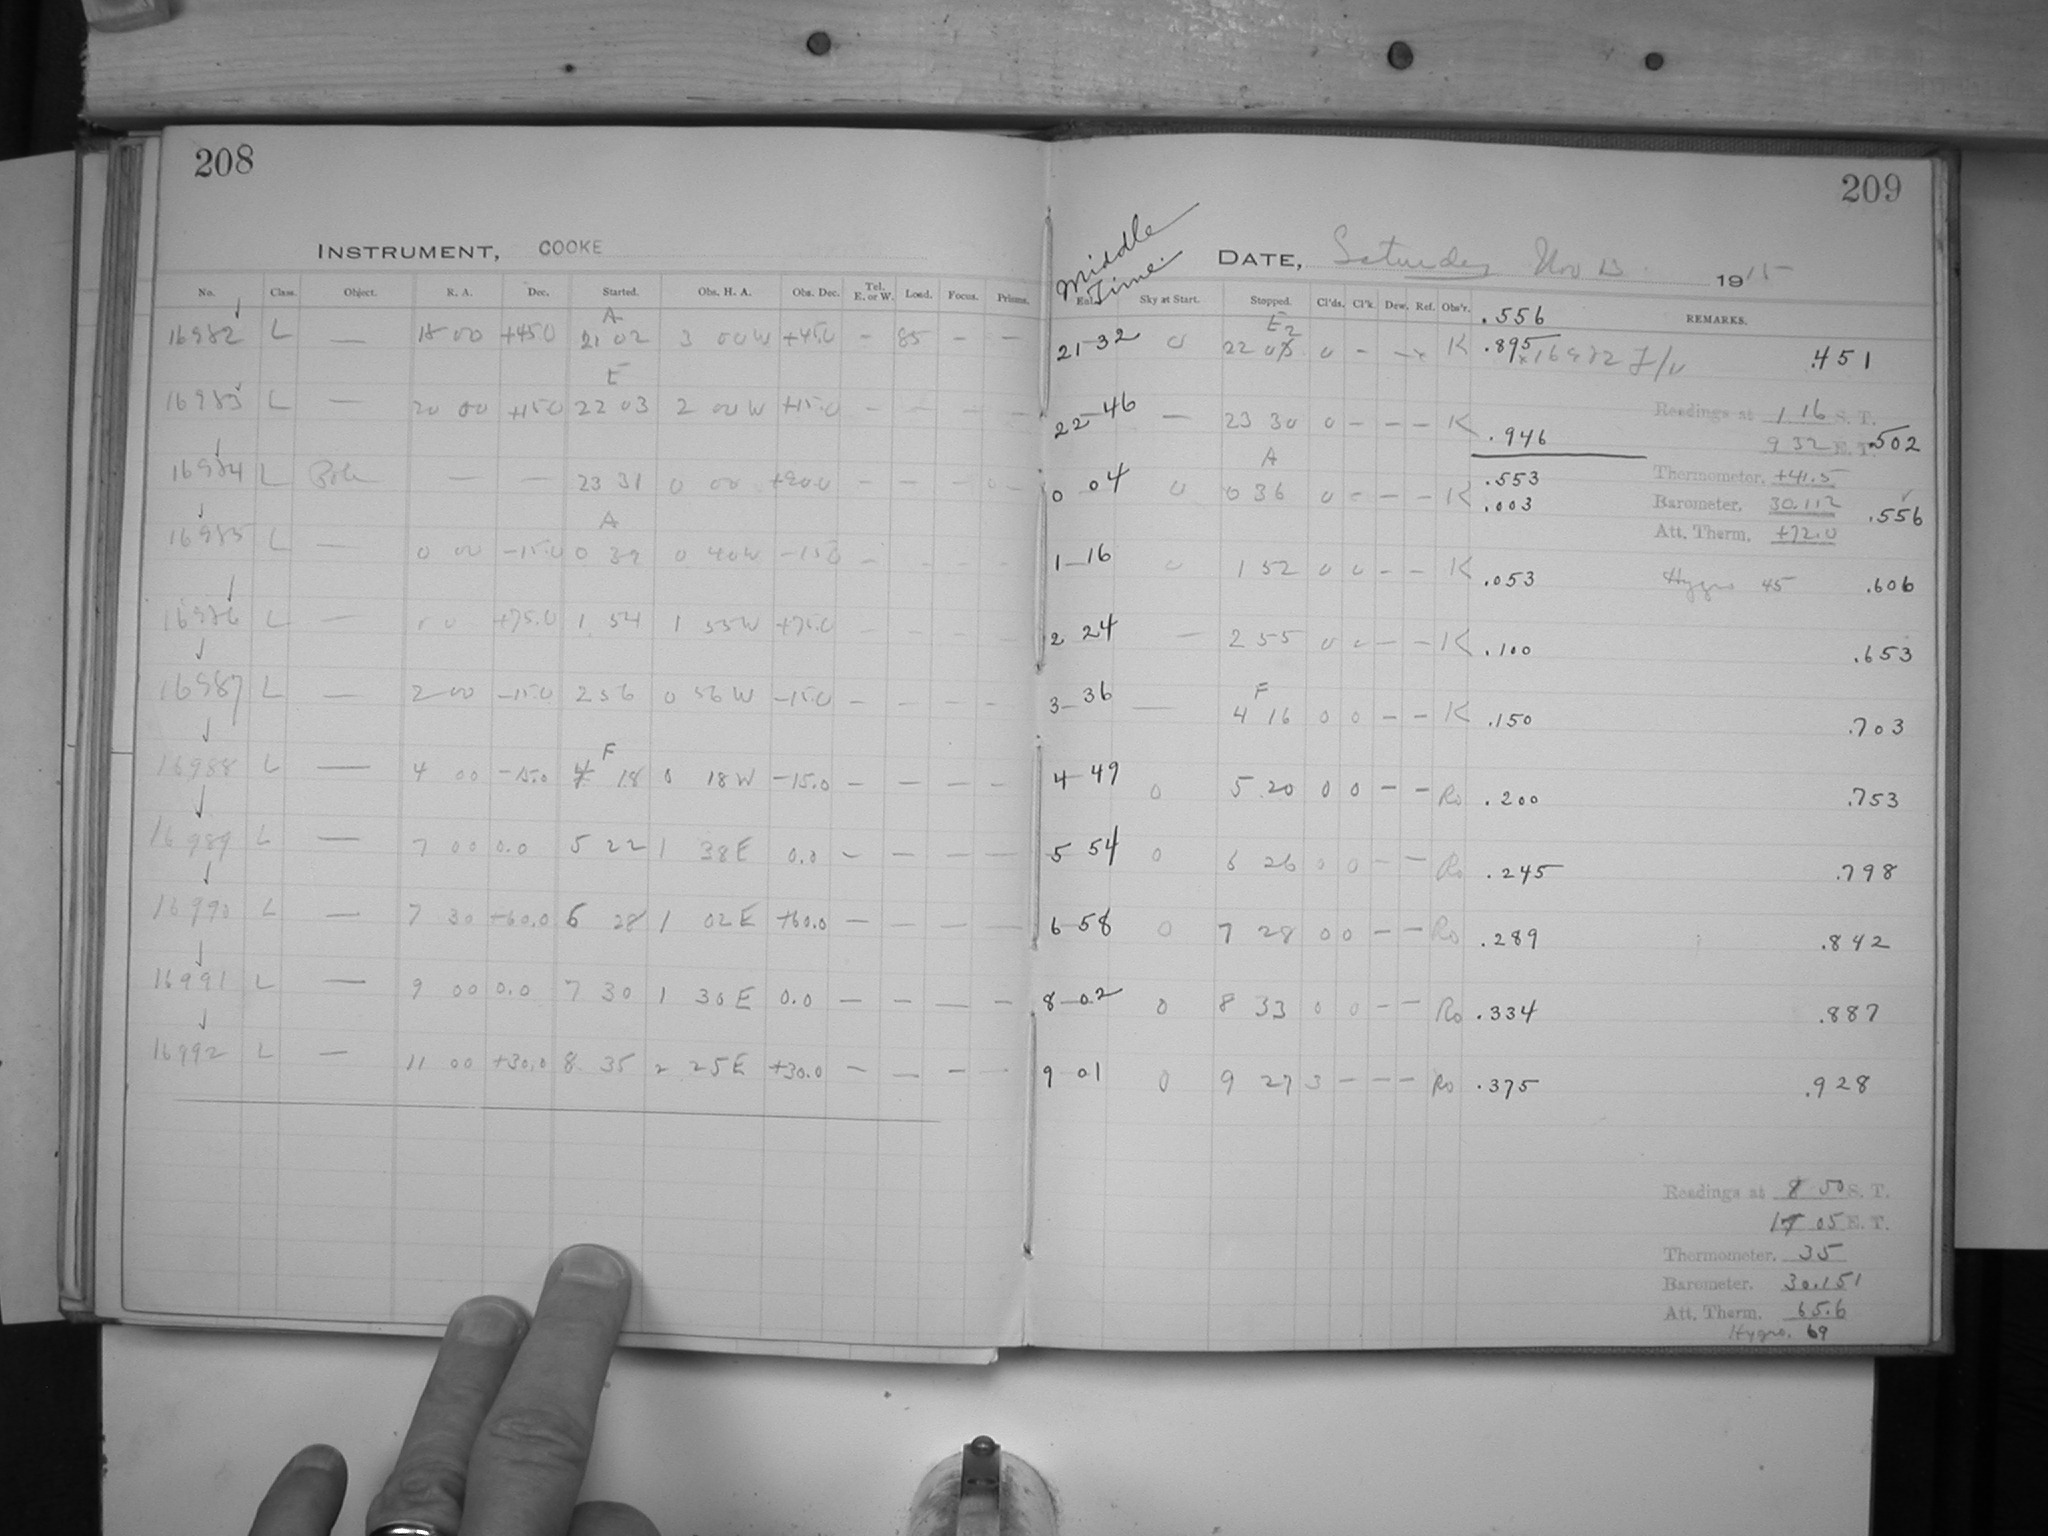 208
INSTRUMENT, COOKE
No. Class. Object. R. A. Dec. Started. Obs. H. A. Obs. Dec. Tel. E. or W. Load. Focus. Prisms.
A
16982 L — 18 00 +45.0 21 02 3 00 W +45.0 — 85 — —
E
16983 L — 20 00 +15.0 22 03 2 00 W +15.0 — — — —
16984 L Pole — — 23 31 0 00 +90.0 — — — —
A
16985 L — 0 00 −15.0 0 39 0 40 W −15.0 — — — —
16986 L — +75.0 1 54 1 55 W +75.0 — — — —
16987 L — 2 00 −15.0 2 56 0 56 W −15.0 — — — —
F
16988 L — 4 00 −15.0 4 18 0 18 W −15.0 — — — —
16989 L — 7 00 0.0 5 22 1 38 E 0.0 — — — —
16990 L — 7 30 +60.0 6 28 1 02 E +60.0 — — — —
16991 L — 9 00 0.0 7 30 1 30 E 0.0 — — — —
16992 L — 11 00 +30.0 8 35 2 25 E +30.0 — — — —
209
Middle Time.
DATE, Saturday Nov 13 1915
Sky at Start. Stopped. Cl'ds. Cl'k. Dew. Ref. Obs'r. .556 REMARKS.
E
21-32 0 22 0 — — K .895 × 16982 .451
Readings at 1 16 S. T.
22-46 — 23 30 0 — — — K .946 9 32 E. T. .502
A
Thermometer. +41.5
.553
0 04 0 0 36 0 — — — K .003 Barometer. 30.112 .556
Att. Therm. +72.0
1-16 0 1 52 0 0 — — K .053 Hygro 45 .606
2 24 — 2 55 0 0 — — K .100 .653
F
3-36 — 4 16 0 0 — — K .150 .703
4-49 0 5 20 0 0 — — Ro .200 .753
5 54 0 6 26 0 0 — — Ro .245 .798
6-58 0 7 28 0 0 — — Ro .289 .842
8-02 0 8 33 0 0 — — Ro .334 .887
9 01 0 9 27 3 — — — Ro .375 .928
Readings at 8 50 S. T.
17 05 E. T.
Thermometer. 35
Barometer. 30.151
Att. Therm. 65.6
Hygro. 69